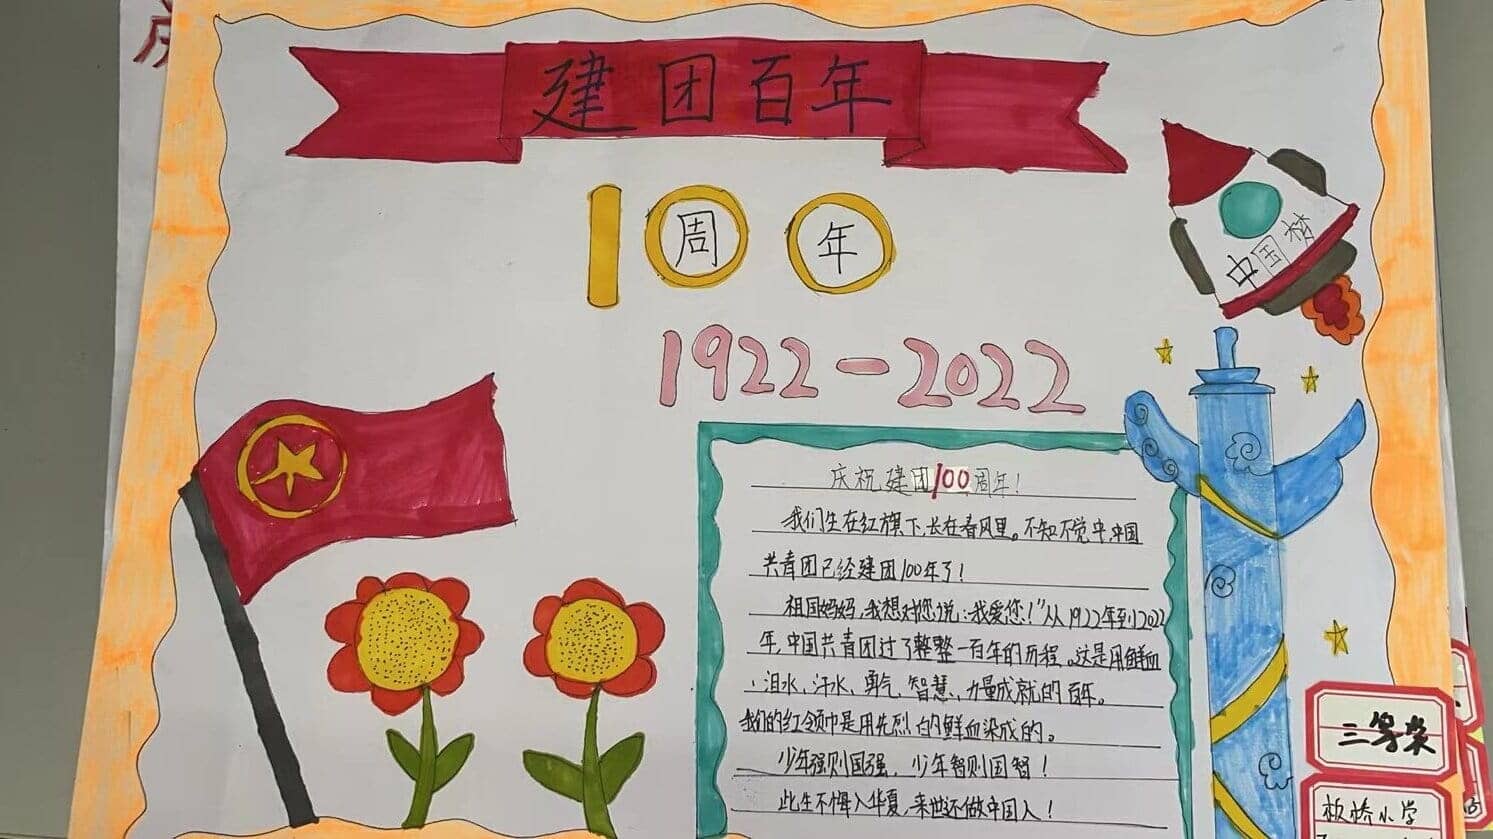 建团百年
100
周年
中国梦
1922-2022
庆祝建团100周年!
我们生在红旗下,长在春风里。不知不觉中,中国
共青团已经建团100年了!
祖国妈妈,我想对您说:“我爱您!”从1922年到2022
年,中国共青团过了整整一百年的历程。这是用鲜血
、泪水、汗水、勇气、智慧、力量成就的百年。
我们的红领巾是用先烈的鲜血染成的。
少年强则国强,少年智则国智!
此生不悔入华夏,来世还做中国人!
三等奖
板桥小学